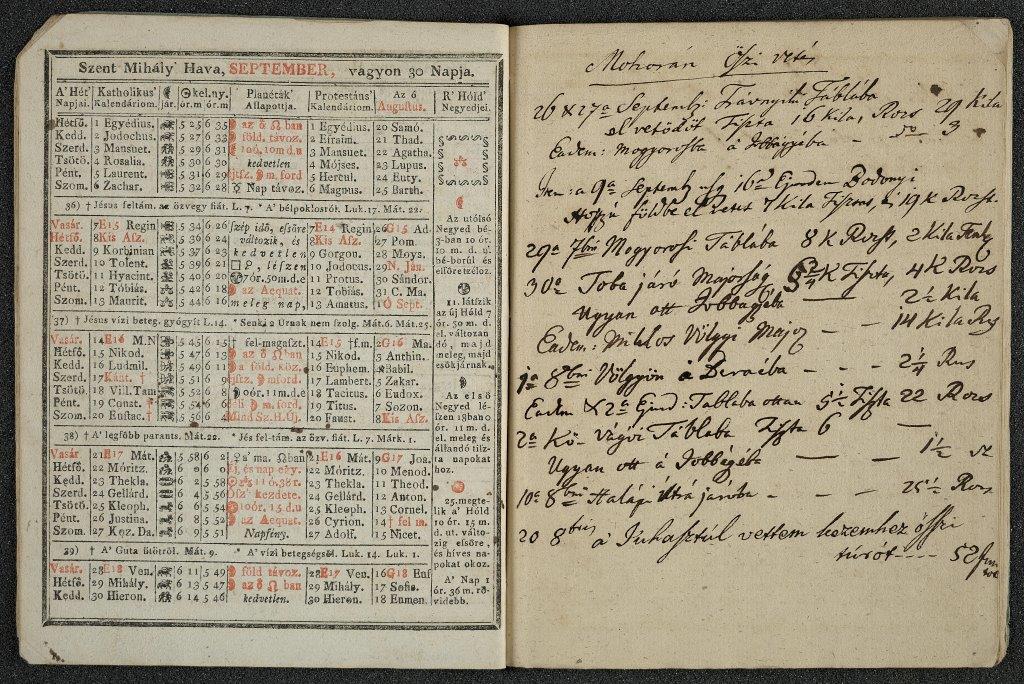 Szent Mihály' Hava, SEPTEMBER, vagyon 30 Napja.
A' Hét' Napjai. Katholikus' Kalendáriom. jár. kel. ny. ór.m ór.m Planéták' Aflapottja. Protestáns' Kalendáriom. Az ó Augustus. R' Hóld' Negyedjei.
Hétfő. 1 Egyédius. 5 25 6 35 az ban 1 Egyédius. 20 Samó.
Kedd. 2 Jodochus. 5 27 6 33 föld. távoz. 2 Efraim. 21 Thad.
Szerd. 3 Mansuet. 5 29 6 31 10ó. 10m. d.u 3 Mansuet. 22 Agatha.
Tsötö. 4 Rosalia. 5 30 6 30 kedvetlen 4 Mójses. 23 Lupus.
Pént. 5 Laurent. 5 31 6 29 m. ford 5 Hercul. 24 Euty.
Szom. 6 Zachar. 5 32 6 28 Nap távoz. 6 Magnus. 25 Barth.
36) † Jésus feltám. az özvegy fiát. L. 7. * A' bélpoklosról. Luk. 17. Mát. 22.
Vasár. 7 E15 Regin 5 34 6 26 szép idő, efsőre 7 E14 Regin. 26 G15 Ad
Hétfő. 8 Kis Afz. 5 35 6 25 változik, és 8 Kis Afz. 27 Pom.
Kedd. 9 Korbinian 5 37 6 23 kedvetlen 9 Gorgon. 28 Moys.
Szerd. 10 Tolent. 5 39 6 21 lészen 10 Jodocus. 29 N. Ján.
Tsötö. 11 Hyacint. 5 40 6 20 7ór. 50m. d.e 11 Protus. 30 Sándor.
Pént. 12 Tóbiás. 5 42 6 18 az Aequat. 12 Tobiás. 31 C. Ma.
Szom. 13 Maurit. 5 44 6 16 meleg nap, 13 Amatus. 1 Sept.
37) † Jésus vízi beteg. gyógyít L. 14. * Senki 2 Urnak nem szolg. Mát. 6. Mát. 25.
Vasár. 14 E16 M.N 5 45 6 15 † fel-magaszt. 14 E15 † f.m. 2 G16 Ma.
Hétfő. 15 Nikod. 5 47 6 13 az ban 15 Nikod. 3 Anthin.
Kedd. 16 Ludmil. 5 49 6 11 a föld. köz. 16 Euphem. 4 Babil.
Szerd. 17 Kánt. † 5 51 6 9 m ford. 17 Lambert. 5 Zakar.
Tsötö. 18 Vill. Tam 5 52 6 8 óór. 11m. d.e 18 Tacitus. 6 Eudox.
Pént. 19 Const. † 5 54 6 6 m. ford. 19 Titus. 7 Sozon.
Szom. 20 Euftac. † 5 56 6 4 20 Faust. 8 Kis Afz.
38) † A' legfőbb parants. Mát. 22. * Jés fel-tám. az özv. fiát. L. 7. Márk. 1.
Vasár. 21 E17 Mát. 5 58 6 2 a' ma. ban 21 E16 Mát. 9 G17 Joa.
Hétfő. 22 Móritz. 6 0 6 0 Éj, és nap egy. 22 Móritz. 10 Menod.
Kedd. 23 Thekla. 6 2 5 58 11ó. 38m. r. 23 Thekla. 11 Theod.
Szerd. 24 Gellért 6 4 5 56 Ősz' kezdete. 24 Gellárd. 12 Anton.
Tsötö. 25 Kleoph. 6 5 5 54 10ór. 15. d.u 25 Kleoph. 13 Cornel.
Pént. 26 Justina. 6 8 5 52 az Aequat. 26 Cyrion. 14 † fel m.
Szom. 27 Koz. Da. 6 9 5 51 Napfény. 27 Adolf. 15 Nicet.
39) † A' Guta ütöttről. Mát. 9. * A' vízi betegségsől. Luk. 14. Luk. 1.
Vasár. 28 E18 Ven. 6 11 5 49 föld távoz. 28 E17 Ven. 16 G18 Euf
Hétfő. 29 Mihály. 6 13 5 47 az ban 29 Mihály. 17 Sofia.
Kedd. 30 Hieron. 6 14 5 46 kedvetlen. 30 Hieron. 18 Eumen.
Az utólsó
Negyed bé-
3-ban 10 ór.
10 m. d. u.
bé-borúl és
efsőre tzéloz.
11. látfzik
az új Hóld 7
ór. 50 m. d.
el. változan
dó, majd
meleg, majd
esőkjárnak.
Az első
Negyed lé-
fzen 18ban 0
ór. 11 m. d.
el. meleg és
állandó tifz-
ta napokat
hoz.
25. megte-
lik a' Hóld
10 ór. 15 m.
d. ut. válto-
zig efsőre,
és híves na-
pokat okoz.
A' Nap 1
ór. 36 m. rö-
videbb.
Mohorán őszi vetés
26 & 27a Septembr: Táblába
el vetődött Tiszta 16 Kila, Rozs 29 Kila
Eadem: Mogyorosba á Jobbágyéba - 3
Item: a 9a Septembr usq 16a Ejusdem Bodonyi
földbe el vetet 7 Kila Tisztas, 19 K Rozst.
29a 7bri Mogyorosi Táblába 8 K Rozst, 2 Kila
30a Toba járó Majorság K Tiszta, 4 K Rozs
Ugyan ott Jobbágyéba — 2½ Kila
Eadem: Miklos Völgyi Major — — 14 Kila Rozs
1a 8bri Völgyön á - - - 2¼ Rozs
Eadem & 2a Ejusd: Táblába ottan 5½ Tiszta 22 Rozs
2a Kő Vágói Táblába Tiszta 6 —
Ugyan ott á Jobbágyéba — — 1½
10a 8bri járóba - — — 25½ Rozs
20 8bris á Juhásztúl vettem kezemhez őszi
túrót - - - - 52